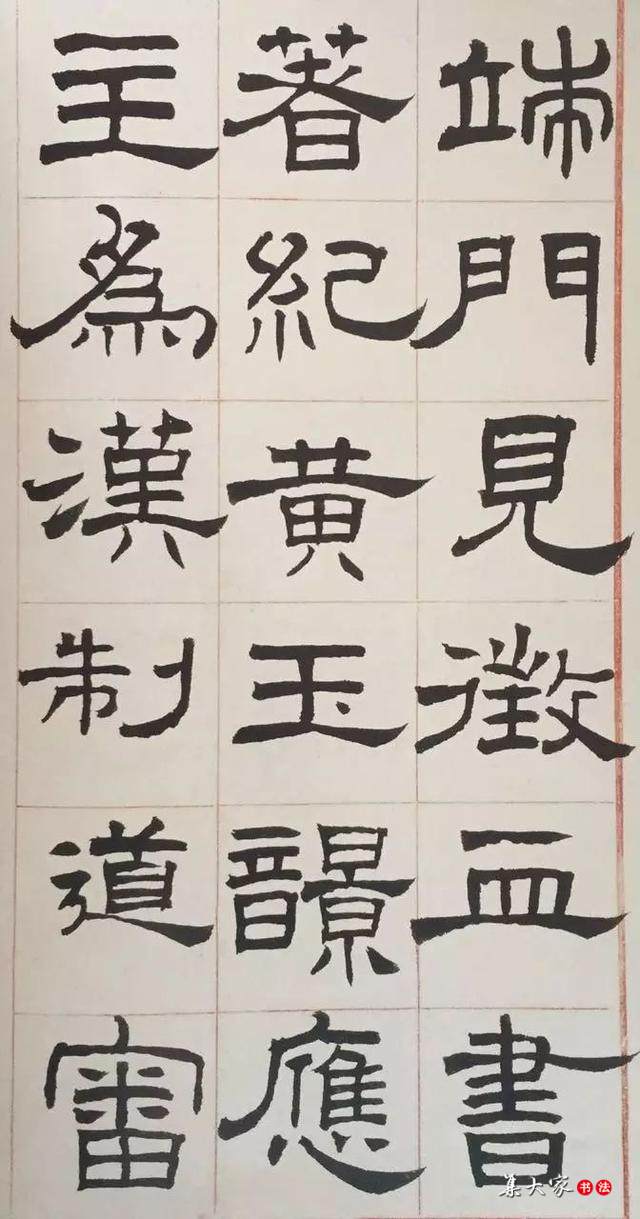 端門見徵血書
著紀黃玉䪫應
主為漢制道審
集大家书法